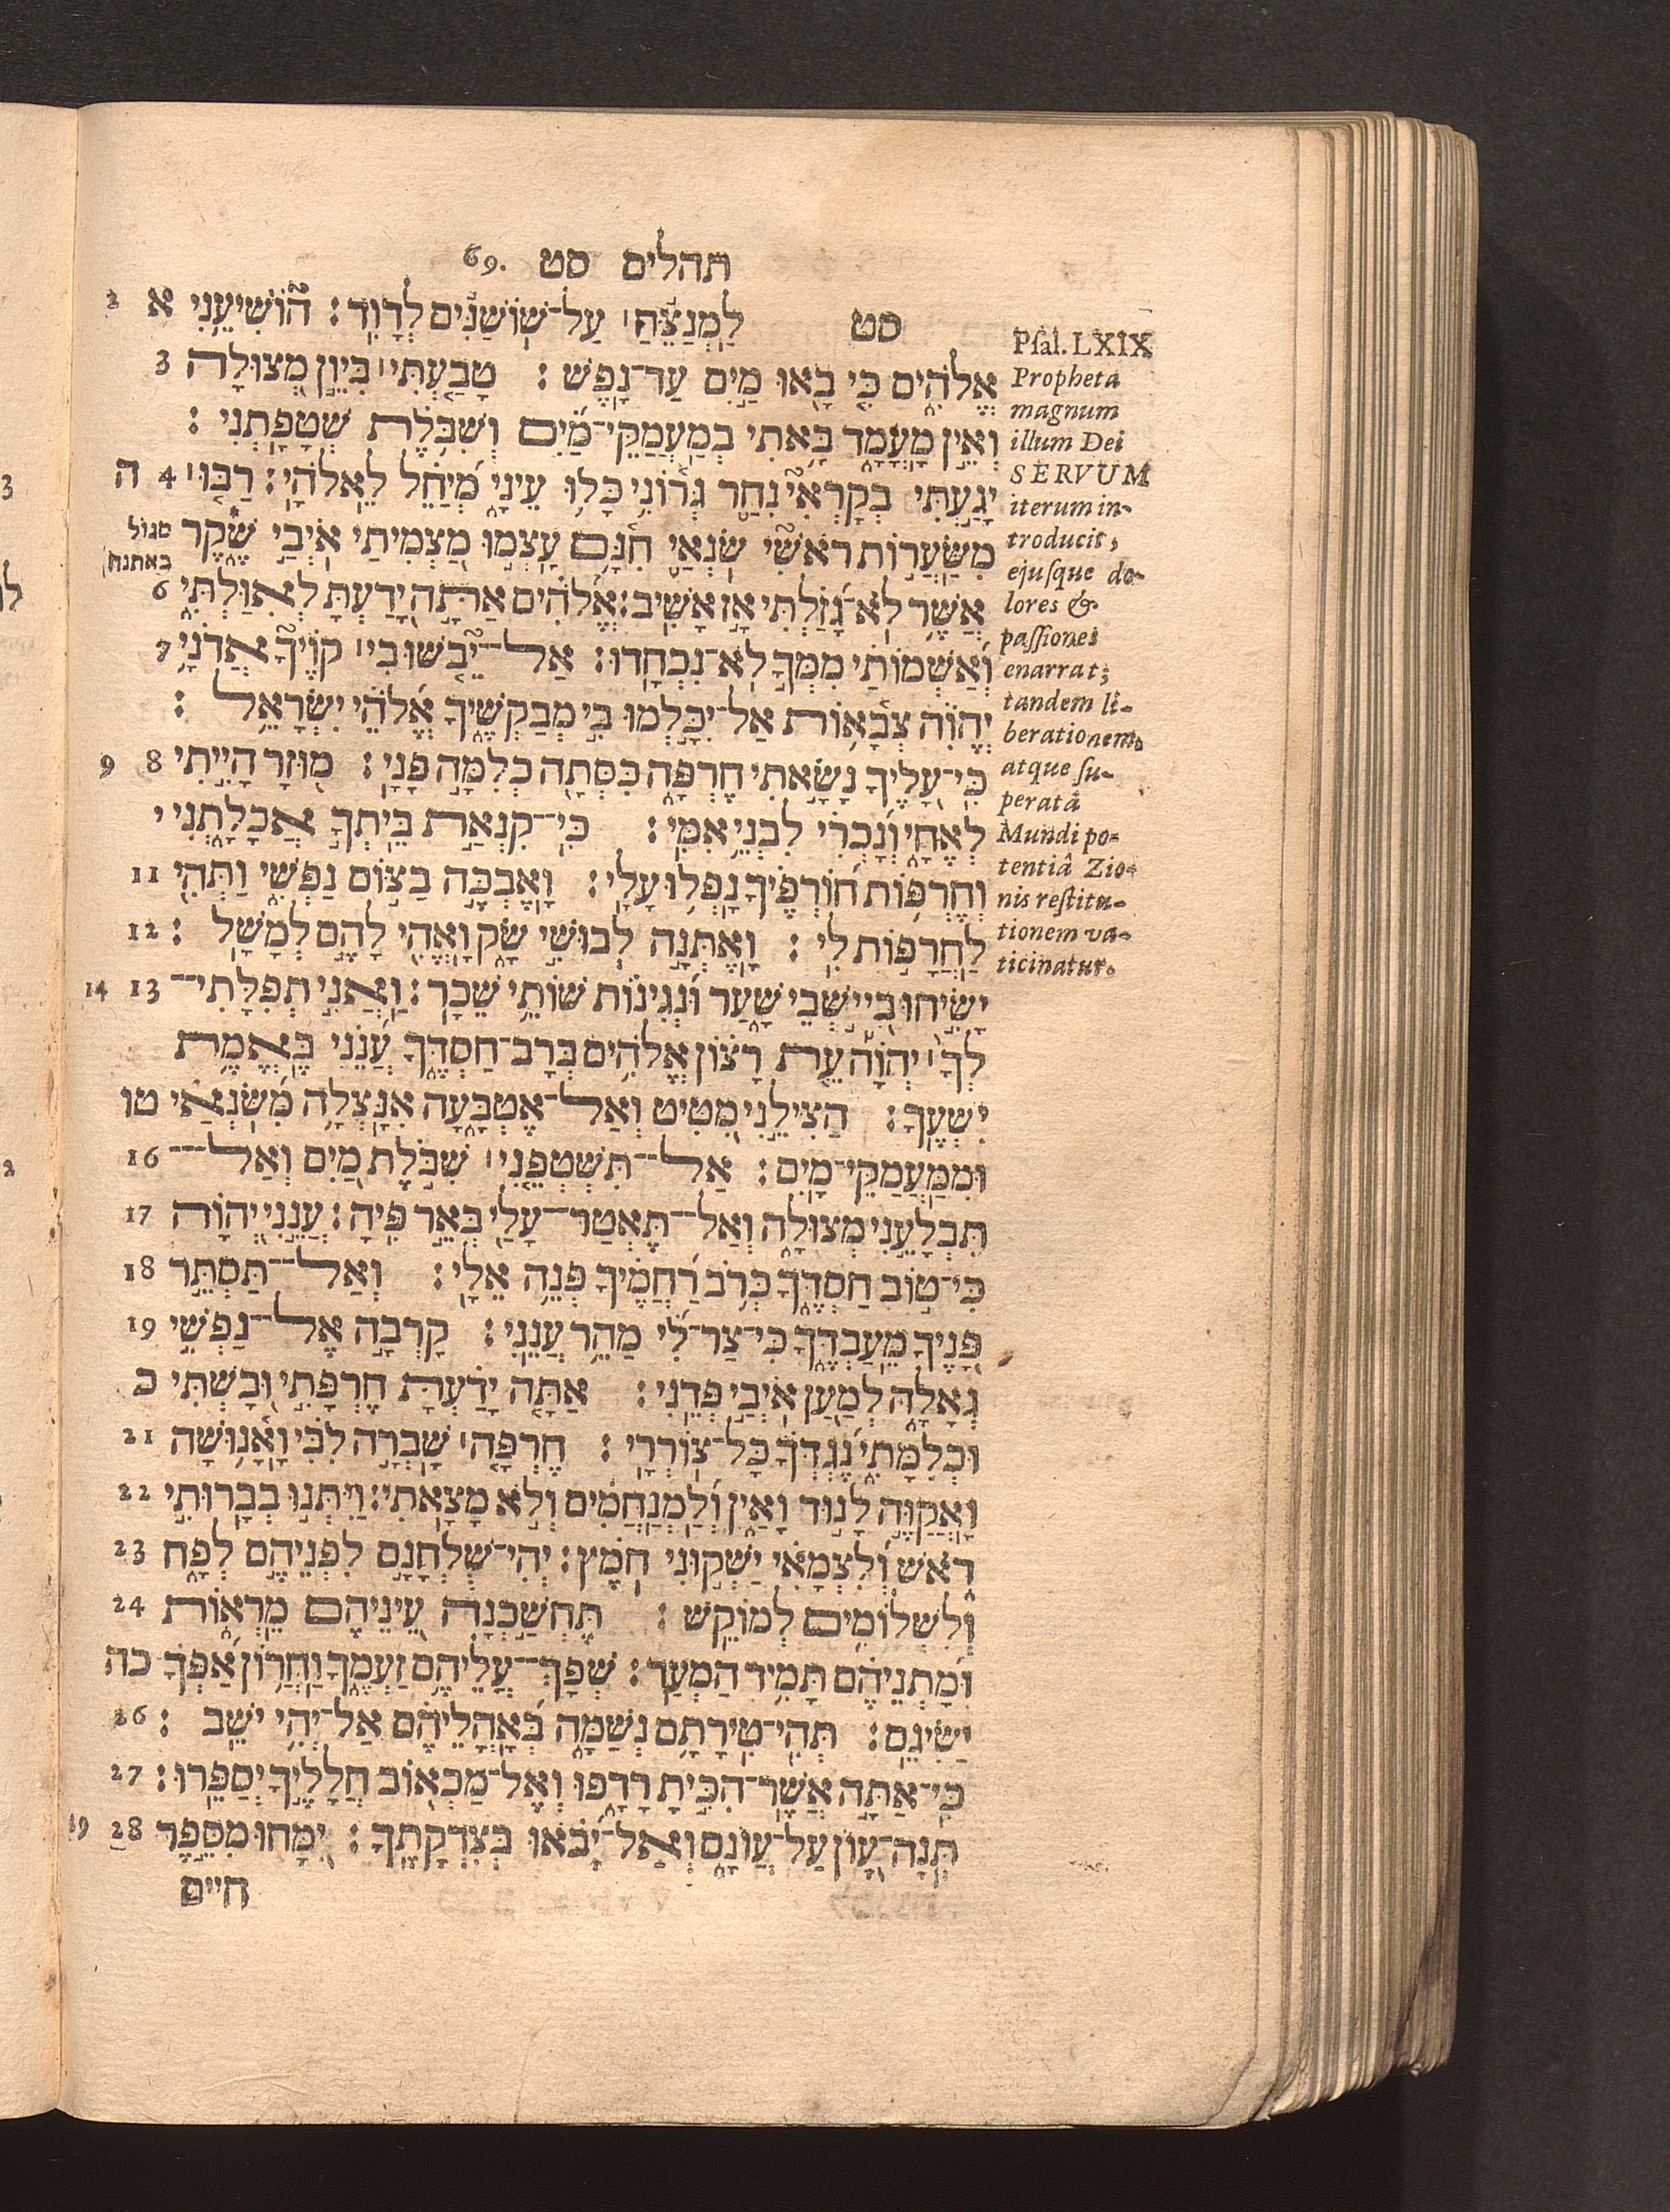 תהלים סט 69.
סט לַמְנַצֵּחַ עַל־שׁוֹשַׁנִּים לְדָוִד׃ הוֹשִׁיעֵנִי א 2
אֱלֹהִים כִּי בָאוּ מַיִם עַד־נָפֶשׁ׃ טָבַעְתִּי בִּיוֵן מְצוּלָה 3
וְאֵין מָעֳמָד בָּאתִי בְמַעֲמַקֵּי־מַיִם וְשִׁבֹּלֶת שְׁטָפָתְנִי׃
יָגַעְתִּי בְקָרְאִי נִחַר גְּרוֹנִי כָּלוּ עֵינַי מְיַחֵל לֵאלֹהָי׃ רַבּוּ 4 ה
מִשַּׂעֲרוֹת רֹאשִׁי שֹׂנְאַי חִנָּם עָצְמוּ מַצְמִיתַי אֹיְבַי שֶׁקֶר
סגול
באתנח
אֲשֶׁר לֹא־גָזַלְתִּי אָז אָשִׁיב׃ אֱלֹהִים אַתָּה יָדַעְתָּ לְאִוַּלְתִּי 6
וְאַשְׁמוֹתַי מִמְּךָ לֹא־נִכְחָדוּ׃ אַל־יֵבֹשׁוּ בִי קוֶֹיךָ אֲדֹנָי 7
יְהוִֹה צְבָאוֹת אַל־יִכָּלְמוּ בִי מְבַקְשֶׁיךָ אֱלֹהֵי יִשְׂרָאֵל׃
כִּי־עָלֶיךָ נָשָׂאתִי חֶרְפָּה כִּסְּתָה כְלִמָּה פָנָי׃ מוּזָר הָיִיתִי 8 9
לְאֶחָי וְנָכְרִי לִבְנֵי אִמִּי׃ כִּי־קִנְאַת בֵּיתְךָ אֲכָלָתְנִי י
וְחֶרְפּוֹת חוֹרְפֶיךָ נָפְלוּ עָלָי׃ וָאֶבְכֶּה בַצּוֹם נַפְשִׁי וַתְּהִי 11
לַחֲרָפוֹת לִי׃ וָאֶתְּנָה לְבוּשִׁי שָׂק וָאֱהִי לָהֶם לְמָשָׁל׃ 12
יָשִׂיחוּ בִי יֹשְׁבֵי שָׁעַר וּנְגִינוֹת שׁוֹתֵי שֵׁכָר׃ וַאֲנִי תְפִלָּתִי־ 13 14
לְךָ יְהוָֹה עֵת רָצוֹן אֱלֹהִים בְּרָב־חַסְדֶּךָ עֲנֵנִי בֶּאֱמֶת
יִשְׁעֶךָ׃ הַצִּילֵנִי מִטִּיט וְאַל־אֶטְבָּעָה אִנָּצְלָה מִשֹּׂנְאַי טו
וּמִמַּעֲמַקֵּי־מָיִם׃ אַל־תִּשְׁטְפֵנִי שִׁבֹּלֶת מַיִם וְאַל־ 16
תִּבְלָעֵנִי מְצוּלָה וְאַל־תֶּאְטַר־עָלַי בְּאֵר פִּיהָ׃ עֲנֵנִי יְהוָֹה 17
כִּי־טוֹב חַסְדֶּךָ כְּרֹב רַחֲמֶיךָ פְּנֵה אֵלָי׃ וְאַל־תַּסְתֵּר 18
פָּנֶיךָ מֵעַבְדֶּךָ כִּי־צַר־לִי מַהֵר עֲנֵנִי׃ קָרְבָה אֶל־נַפְשִׁי 19
גְאָלָהּ לְמַעַן אֹיְבַי פְּדֵנִי׃ אַתָּה יָדַעְתָּ חֶרְפָּתִי וּבָשְׁתִּי כ
וּכְלִמָּתִי נֶגְדְּךָ כָּל־צוֹרְרָי׃ חֶרְפָּה שָׁבְרָה לִבִּי וָאָנוּשָׁה 21
וָאֲקַוֶּה לָנוּד וָאַיִן וְלַמְנַחֲמִים וְלֹא מָצָאתִי׃ וַיִּתְּנוּ בְּבָרוּתִי 22
רֹאשׁ וְלִצְמָאִי יַשְׁקוּנִי חֹמֶץ׃ יְהִי־שֻׁלְחָנָם לִפְנֵיהֶם לְפָח 23
וְלִשְׁלוֹמִים לְמוֹקֵשׁ׃ תֶּחְשַׁכְנָה עֵינֵיהֶם מֵרְאוֹת 24
וּמָתְנֵיהֶם תָּמִיד הַמְעַד׃ שְׁפָךְ־עֲלֵיהֶם זַעְמֶךָ וַחֲרוֹן אַפְּךָ כה
יַשִּׂיגֵם׃ תְּהִי־טִירָתָם נְשַׁמָּה בְּאָהֳלֵיהֶם אַל־יְהִי יֹשֵׁב׃ 26
כִּי־אַתָּה אֲשֶׁר־הִכִּיתָ רָדָפוּ וְאֶל־מַכְאוֹב חֲלָלֶיךָ יְסַפֵּרוּ׃ 27
תְּנָה־עָוֹן עַל־עֲוֹנָם וְאַל־יָבֹאוּ בְּצִדְקָתֶךָ׃ יִמָּחוּ מִסֵּפֶר 28 29
חיים
Pſal. LXIX
Propheta
magnum
illum Dei
SERVUM
iterum in-
troducit,
ejuſque do-
lores &
paſſiones
enarrat;
tandem li-
berationem
atque ſu-
peratâ
Mundi po-
tentiâ Zio-
nis reſtitu-
tionem va-
ticinatur.